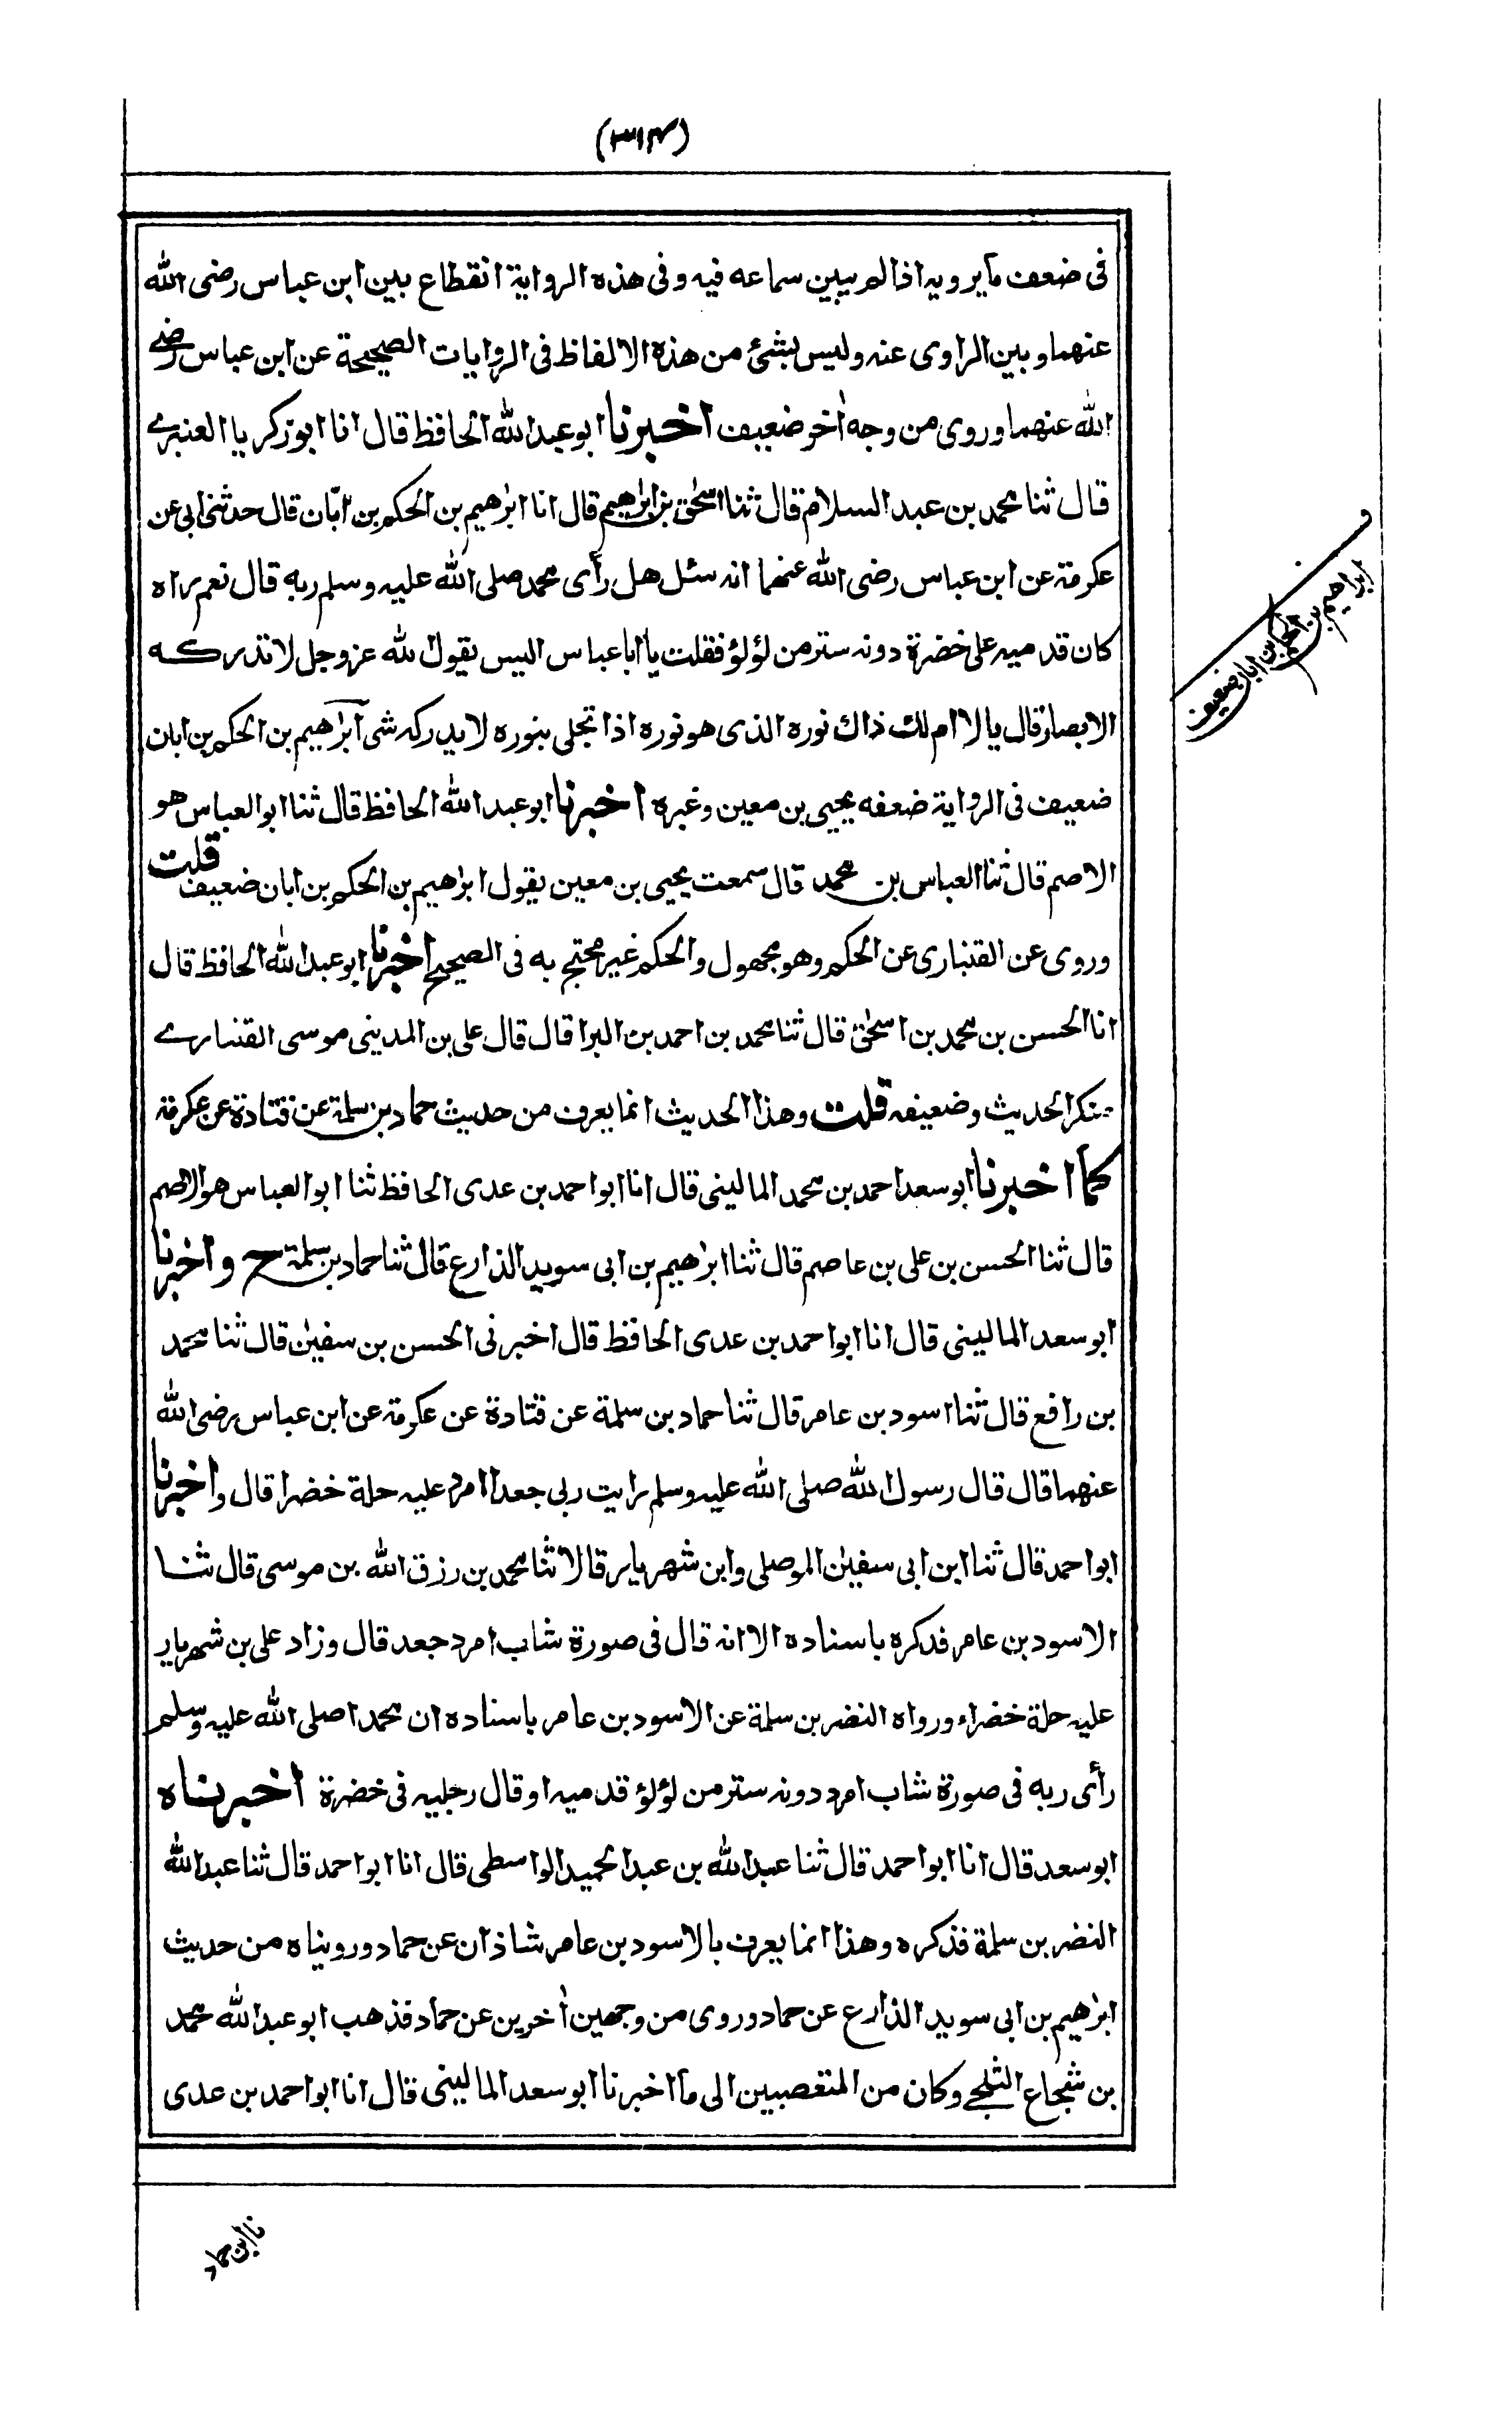 (٣١٤)
في ضعف ما يرويه اذا لم يبين سماعه فيه وفى هذه الرواية انقطاع بين ابن عباس رضى الله
عنهما وبين الراوى عنه وليس بشئ من هذه الالفاظ فى الروايات الصحيحة عن ابن عباس رضے
الله عنهما وروى من وجه اٰخر ضعيف اخبرنا ابو عبد الله الحافظ قال انا ابو زكريا العنبرے
قال ثنا محمد بن عبد السلام قال ثنا اسحٰق بن ابراهيم قال انا ابرٰهيم بن الحكم بن ابّان قال حدثنى ابى عن
عكرمة عن ابن عباس رضى الله عنهما انه سئل هل رأى محمد صلى الله عليه وسلم ربه قال نعم راه
كان قدميه على خضرة دونه ستر من لؤلؤ فقلت يا ابا عباس اليس يقول الله عز وجل لا تدركه
الابصار قال يا لا ام لك ذاك نوره الذى هو نوره اذا تجلى بنوره لا يدركه شى ابرٰهيم بن الحكم بن ابان
ضعيف فى الرواية ضعفه يحيى بن معين وغيره اخبرنا ابو عبد الله الحافظ قال ثنا ابو العباس هو
الاصم قال ثنا العباس بن محمد قال سمعت يحيى بن معين يقول ابراهيم بن الحكم بن ابان ضعيف قلت
وروى عن القنبارى عن الحكم وهو مجهول والحكم غير محتج به فى الصحيح اخبرنا ابو عبد الله الحافظ قال
انا الحسن بن محمد بن اسحٰق قال ثنا محمد بن احمد بن البرا قال قال على بن المدينى موسى القنبارے
منكر الحديث وضعيفه قلت وهذا الحديث انما يعرف من حديث حماد بن سلمة عن قتادة عن عكرمة
كما اخبرنا ابو سعد احمد بن محمد المالينى قال انا ابو احمد بن عدى الحافظ ثنا ابو العباس هو الاصم
قال ثنا الحسن بن على بن عاصم قال ثنا ابرٰهيم بن ابى سويد الذارع قال ثنا حماد بن سلمة ح واخبرنا
ابو سعد المالينى قال انا ابو احمد بن عدى الحافظ قال اخبرنى الحسن بن سفيٰن قال ثنا محمد
بن رافع قال ثنا اسود بن عامر قال ثنا حماد بن سلمة عن قتادة عن عكرمة عن ابن عباس رضى الله
عنهما قال قال رسول الله صلى الله عليه وسلم رايت ربى جعدا امرد عليه حلة خضرا قال واخبرنا
ابو احمد قال ثنا ابن ابى سفيٰن الموصلى وابن شهريار قالا ثنا محمد بن رزق الله بن موسى قال ثنا
الاسود بن عامر فذكره باسناده الا انه قال فى صورة شاب امرد جعد قال وزاد على بن شهريار
عليه حلة خضراء ورواه النضر بن سلمة عن الاسود بن عامر باسناده ان محمدا صلى الله عليه وسلم
رأى ربه فى صورة شاب امرد دونه ستر من لؤلؤ قدميه او قال رجليه فى خضرة اخبرناه
ابو سعد قال انا ابو احمد قال ثنا عبد الله بن عبد الحميد الواسطى قال انا ابو احمد قال ثنا عبد الله
النضر بن سلمة فذكره وهذا انما يعرف بالاسود بن عامر شاذان عن حماد ورويناه من حديث
ابرٰهيم بن ابى سويد الذارع عن حماد وروى من وجهين اٰخرين عن حماد فذهب ابو عبد الله محمد
بن شجاع الثلجے وكان من المتعصبين الى ما اخبرنا ابو سعد المالينى قال انا ابو احمد بن عدى
ابراهيم بن الحكم بن ابان ضعيف
نا ابن حماد